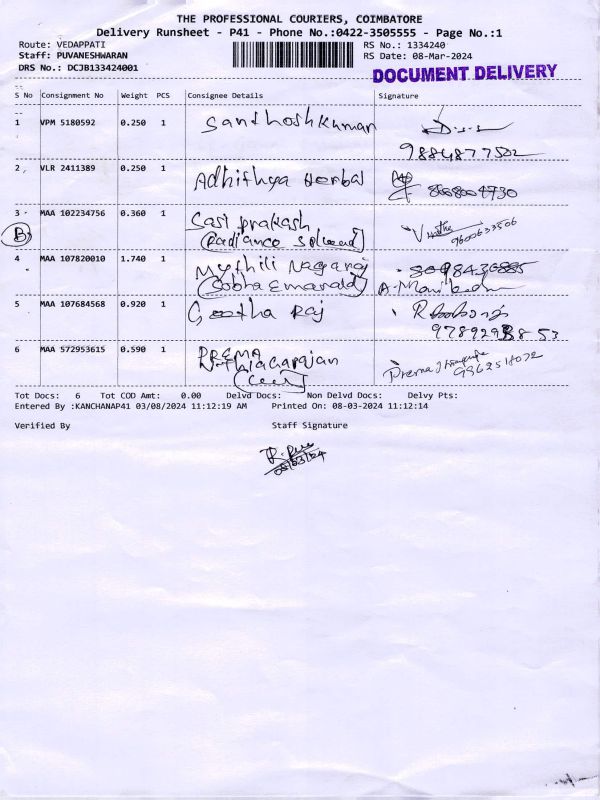 THE PROFESSIONAL COURIERS, COIMBATORE
Delivery Runsheet - P41 - Phone No.:0422-3505555 - Page No.:1
Route: VEDAPPATI RS No.: 1334240
Staff: PUVANESHWARAN RS Date: 08-Mar-2024
DRS No.: DCJB133424001
DOCUMENT DELIVERY
S No Consignment No Weight PCS Consignee Details Signature
1 VPM 5180592 0.250 1 Santhosh Kumar
9884877502
2 VLR 2411389 0.250 1 Adhithya Herbal
8668004930
3 MAA 102234756 0.360 1 Sasi prakash
9600633506
B
4 MAA 107820010 1.740 1 Mythili Nagaraj
(Sobha Emarald)
5 MAA 107684568 0.920 1 Geetha Raj
6 MAA 572953615 0.590 1 PREMA
Prema
Tot Docs: 6 Tot COD Amt: 0.00 Delvd Docs: Non Delvd Docs: Delvy Pts:
Entered By :KANCHANAP41 03/08/2024 11:12:19 AM Printed On: 08-03-2024 11:12:14
Verified By Staff Signature